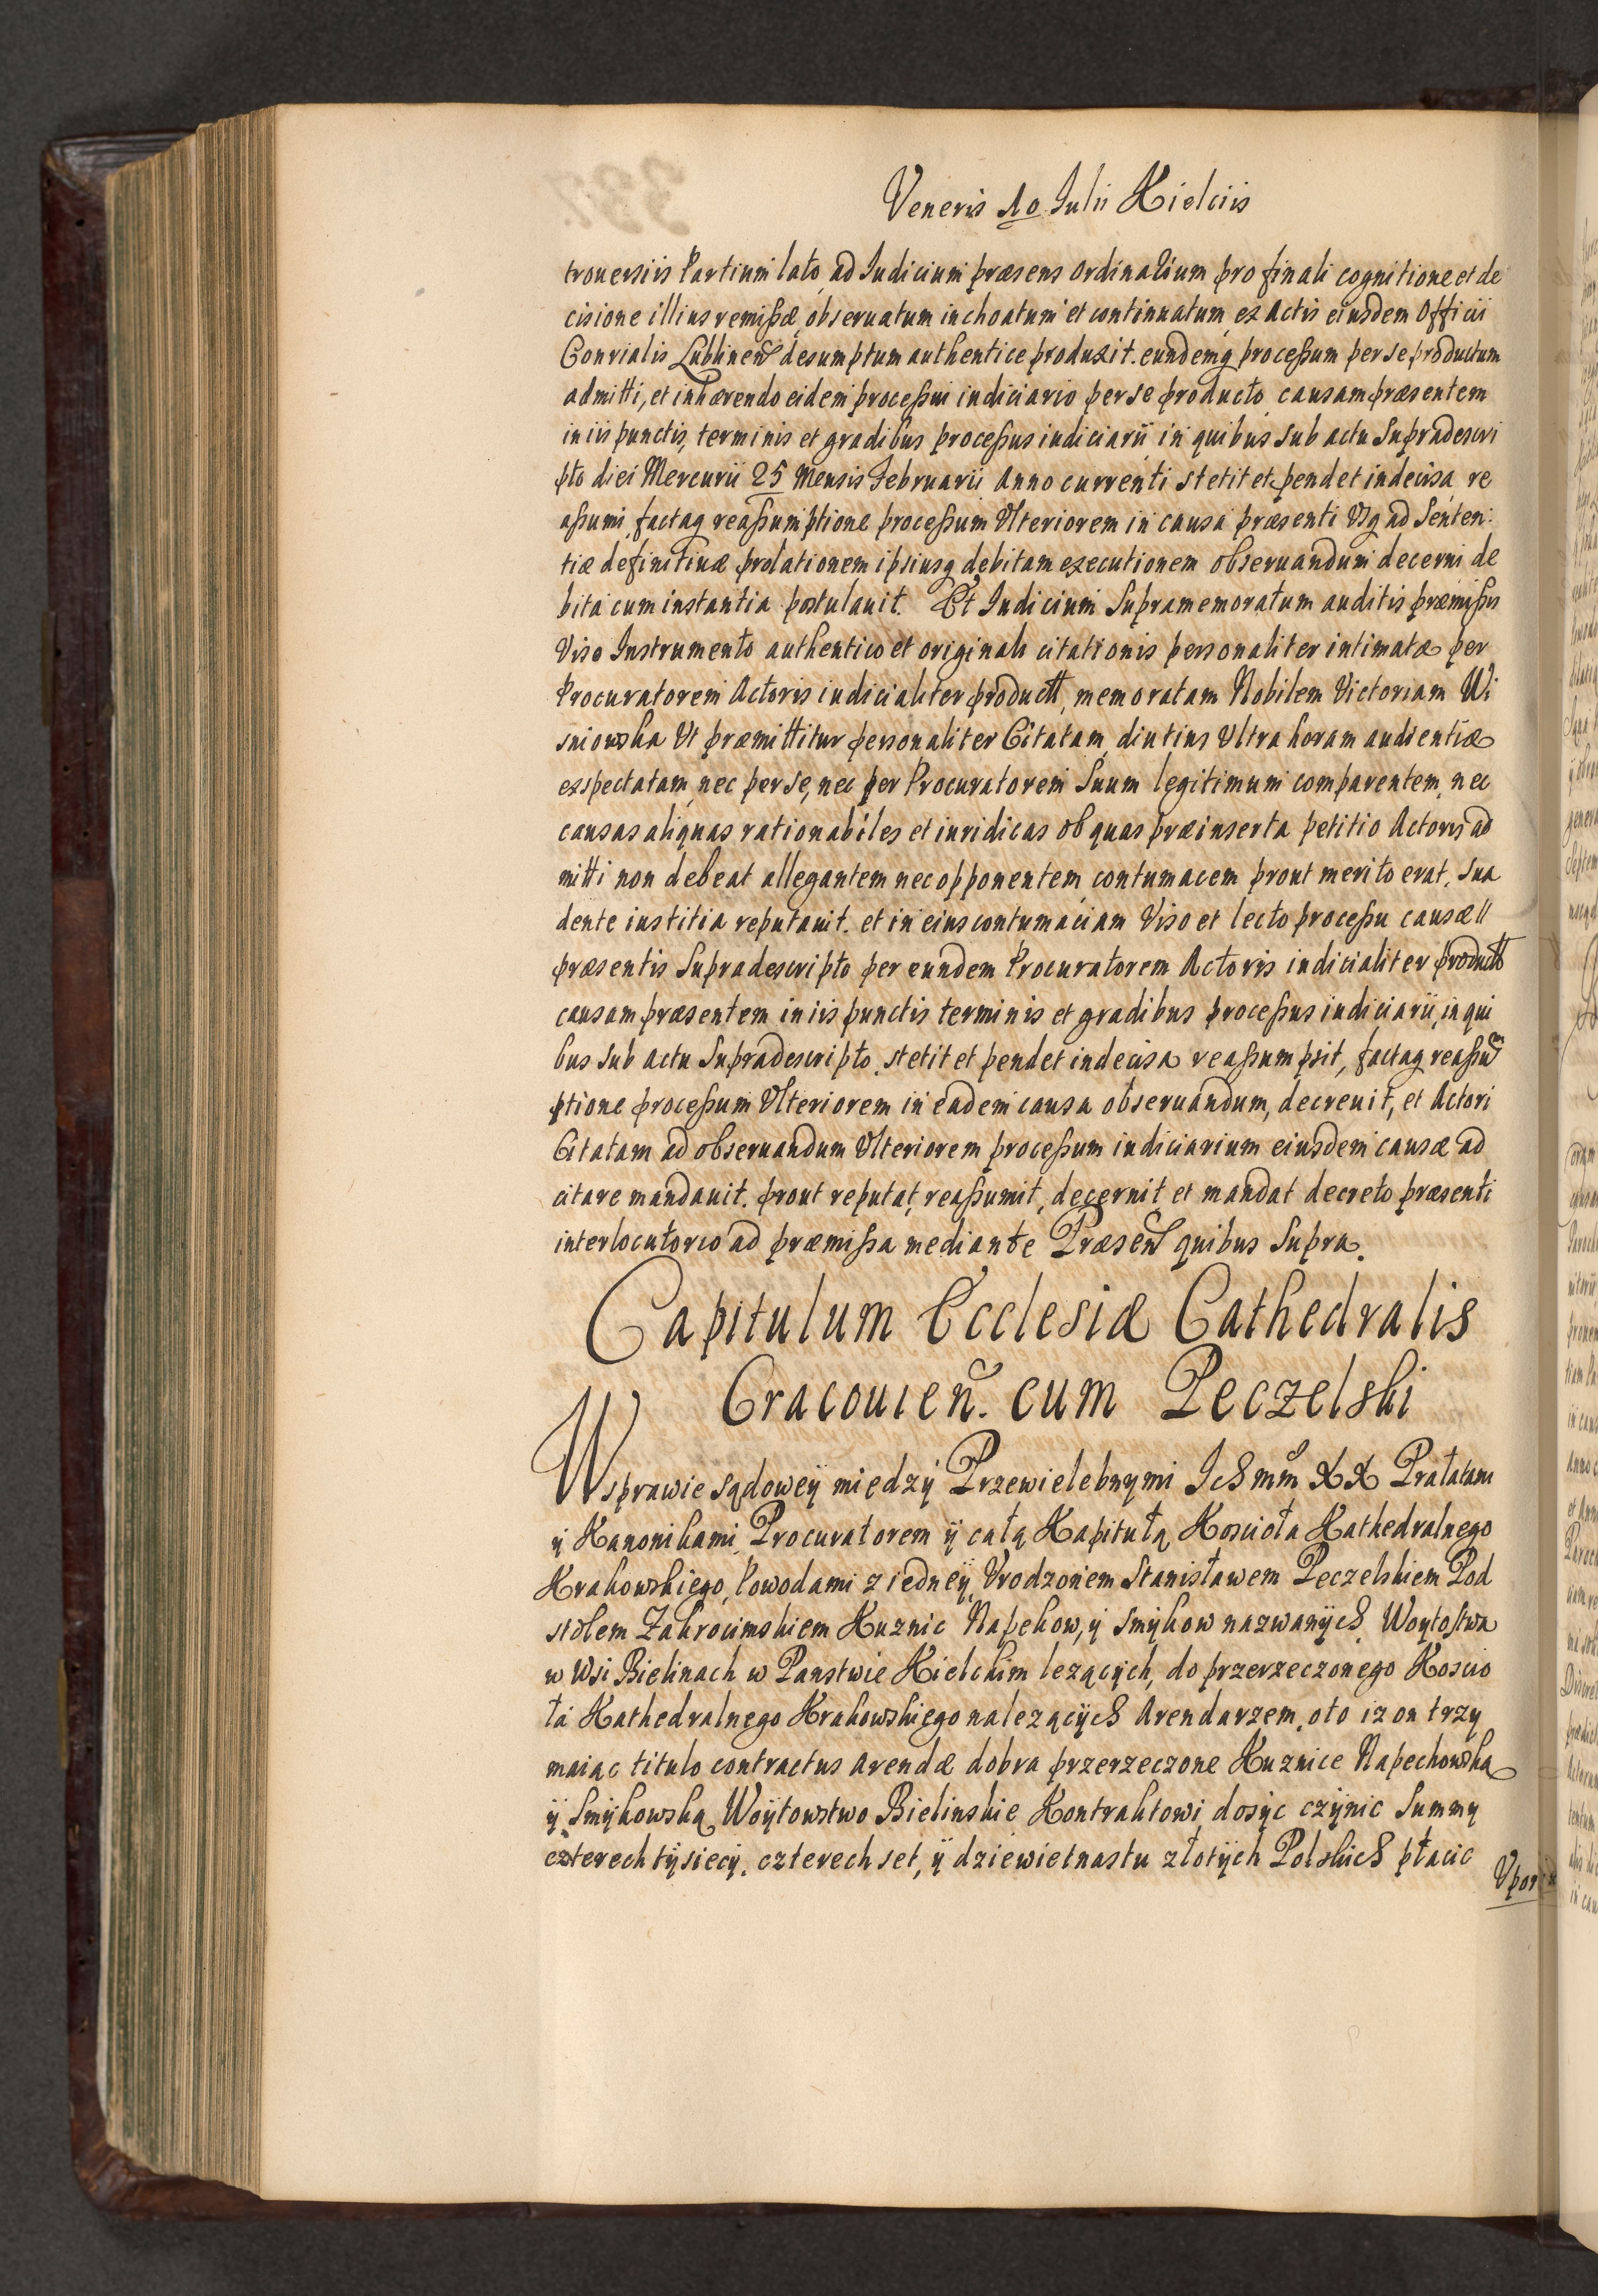 Veneris 10 Iulii Kielciis
trouersiis Partium lato, ad Iudicium præsens ordinarium pro finali cognitione et de
cisione illius remißæ, obseruatum inchoatum et continuatum, ex Actis eiusdem Officii
Conrialis Lublineñ desumptum authentice produxit. eundemq proceßum per se productum
admitti, et inhærendo eidem proceßui iudiciario per se producto, causam præsentem
in iis punctis, terminis et gradibus proceßus iudiciarii, in quibus sub actu Supradescri
pto diei Mercurii 25 Mensis Februarii Anno currenti stetit et pendet indecisa, re
aßumi, factaq reaßumptione proceßum Vlteriorem in causa præsenti Vsq ad Senten:
tiæ definitiuæ prolationem ipsiusq debitam executionem obseruandum decerni de
bita cum instantia postulauit. Et Iudicium Supramemoratum auditis præmißis
Viso Instrumento authentico et originali citationis personaliter intimatæ per
Procuratorem Actoris iudicialiter productt, memoratam Nobilem Victoriam Wi
sniowska Vt præmittitur personaliter Citatam, diutius Vltra horam audientiæ
expectatam, nec per se, nec per Procuratorem Suum legitimum comparentem, nec
causas aliquas rationabiles et iuridicas ob quas præinserta petitio Actoris ad
mitti non debeat allegantem nec opponentem, contumacem prout merito erat, sua
dente iustitia reputauit. et in eius contumaciam Viso et lecto proceßu causæ //
præsentis Supradescripto per eundem Procuratorem Actoris iudicialiter productto
causam præsentem in iis punctis terminis et gradibus proceßus iudiciarii, in qui
bus sub actu Supradescripto, stetit et pendet indecisa reaßumpsit, factaq reaßum
ptione proceßum Vlteriorem in eadem causa obseruandum, decreuit, et Actori
Citatam ad obseruandum Vlteriorem proceßum iudiciarium eiusdem causæ ad
citare mandauit. prout reputat, reaßumit, decernit, et mandat decreto præsenti
interlocutorio ad præmißa mediante Præseñ quibus Supra.
Capitulum Ecclesiæ Cathedralis
Cracouień. cum Peczelski
W sprawie sądoweÿ międzÿ Przewielebnymi IchMm XX Prałatami
ÿ Kanonikami, Procuratorem ÿ całą Kapitułą Kosciоła Kathedralnego
Krakowskiego, Powodami z iedneÿ, Vrodzonem Stanisławem Peczelskiem Pod
stolem Zakrocimskiem Kuznic Napekow, ÿ Smÿkow nazwanÿch, Woytostwa
w Wsi Bielinach w Panstwie Kielckim lezącÿch, do przerzeczonego Koscio
ła Kathedralnego Krakowskiego nalezącÿch Arendarzem, oto iz on trzy
maiąc titulo contractus arendæ dobra przerzeczone Kuznice Napechowską
ÿ Smÿkowską, Woÿtowstwo Bielinskie Kontraktowi, dosÿc czÿnic Summy
czterech tÿsiecÿ, czterech set, ÿ dziewietnastu złotÿch Polskich płacic